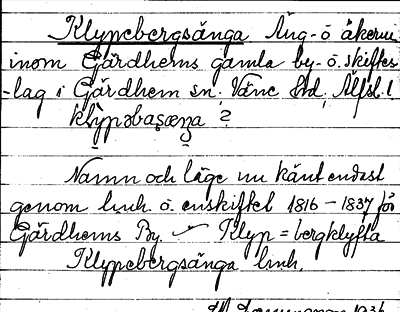 Klypebergsänga Äng o åkerm
inom Gärdhems gamla by- o. skiftes
-lag i Gärdhem sn. Väne Hd, Älfsb. l.
klỳpəbaṣæŋa ?
Namn och läge nu känt endast
genom lmh o. enskiftet 1816 - 1837 för
Gärdhems By. Klyp = bergklyfta
Klypebergsänga lmh.
1936